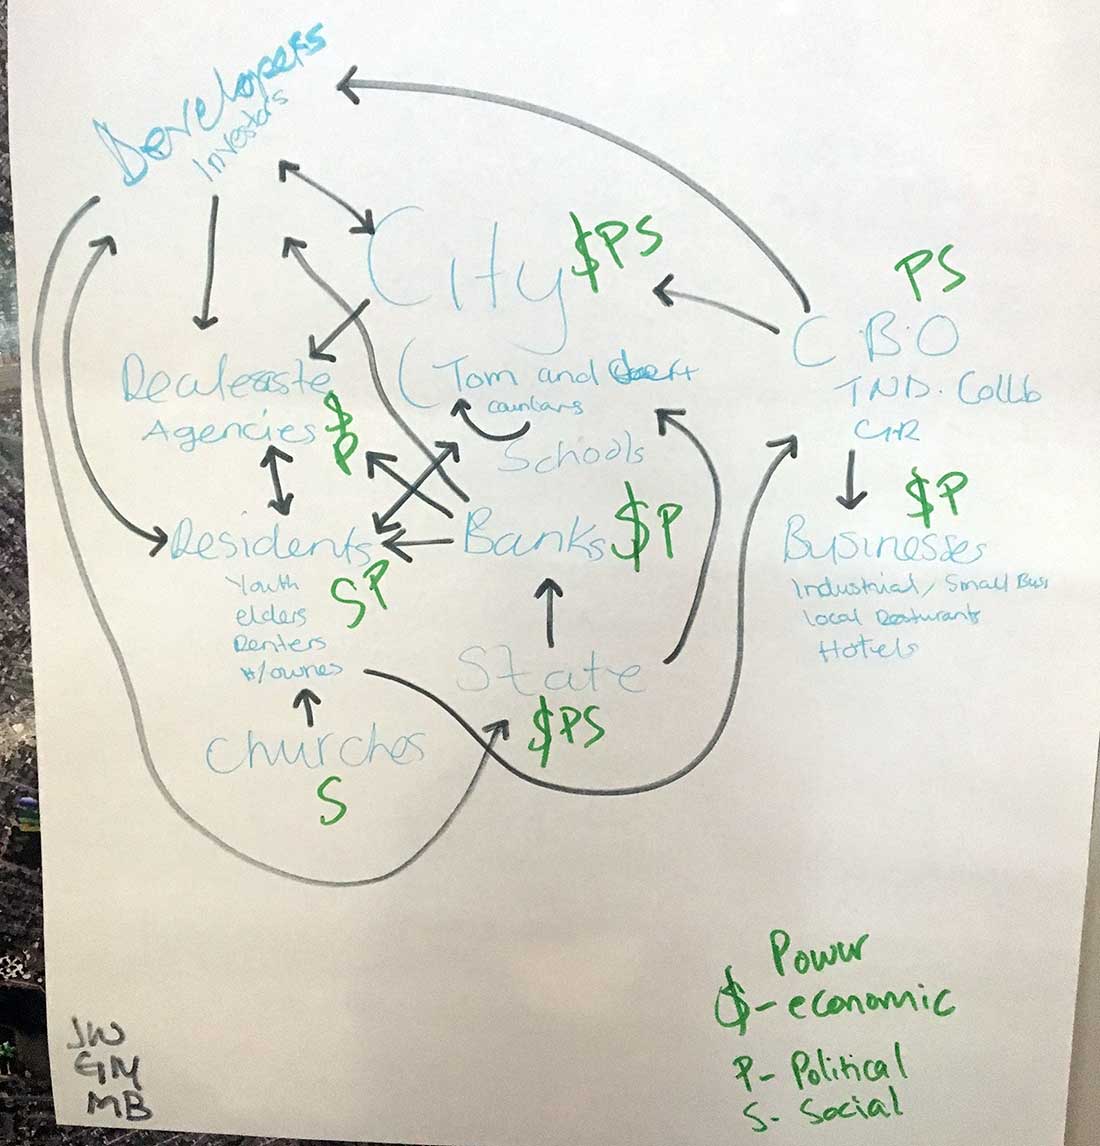 Developers
Investors
City $PS
(Tom and
PS
C.B.O
TND. Collb
Realeaste
Agencies $
P
Schools
$P
Residents
SP
Youth
elders
Renters
H/ownes
Banks $P
Businesses
Industrial/Small Buss
local Resturants
Hotels
State
$PS
Churches
S
Power
$ - economic
P - Political
S - Social
JW
GM
MB